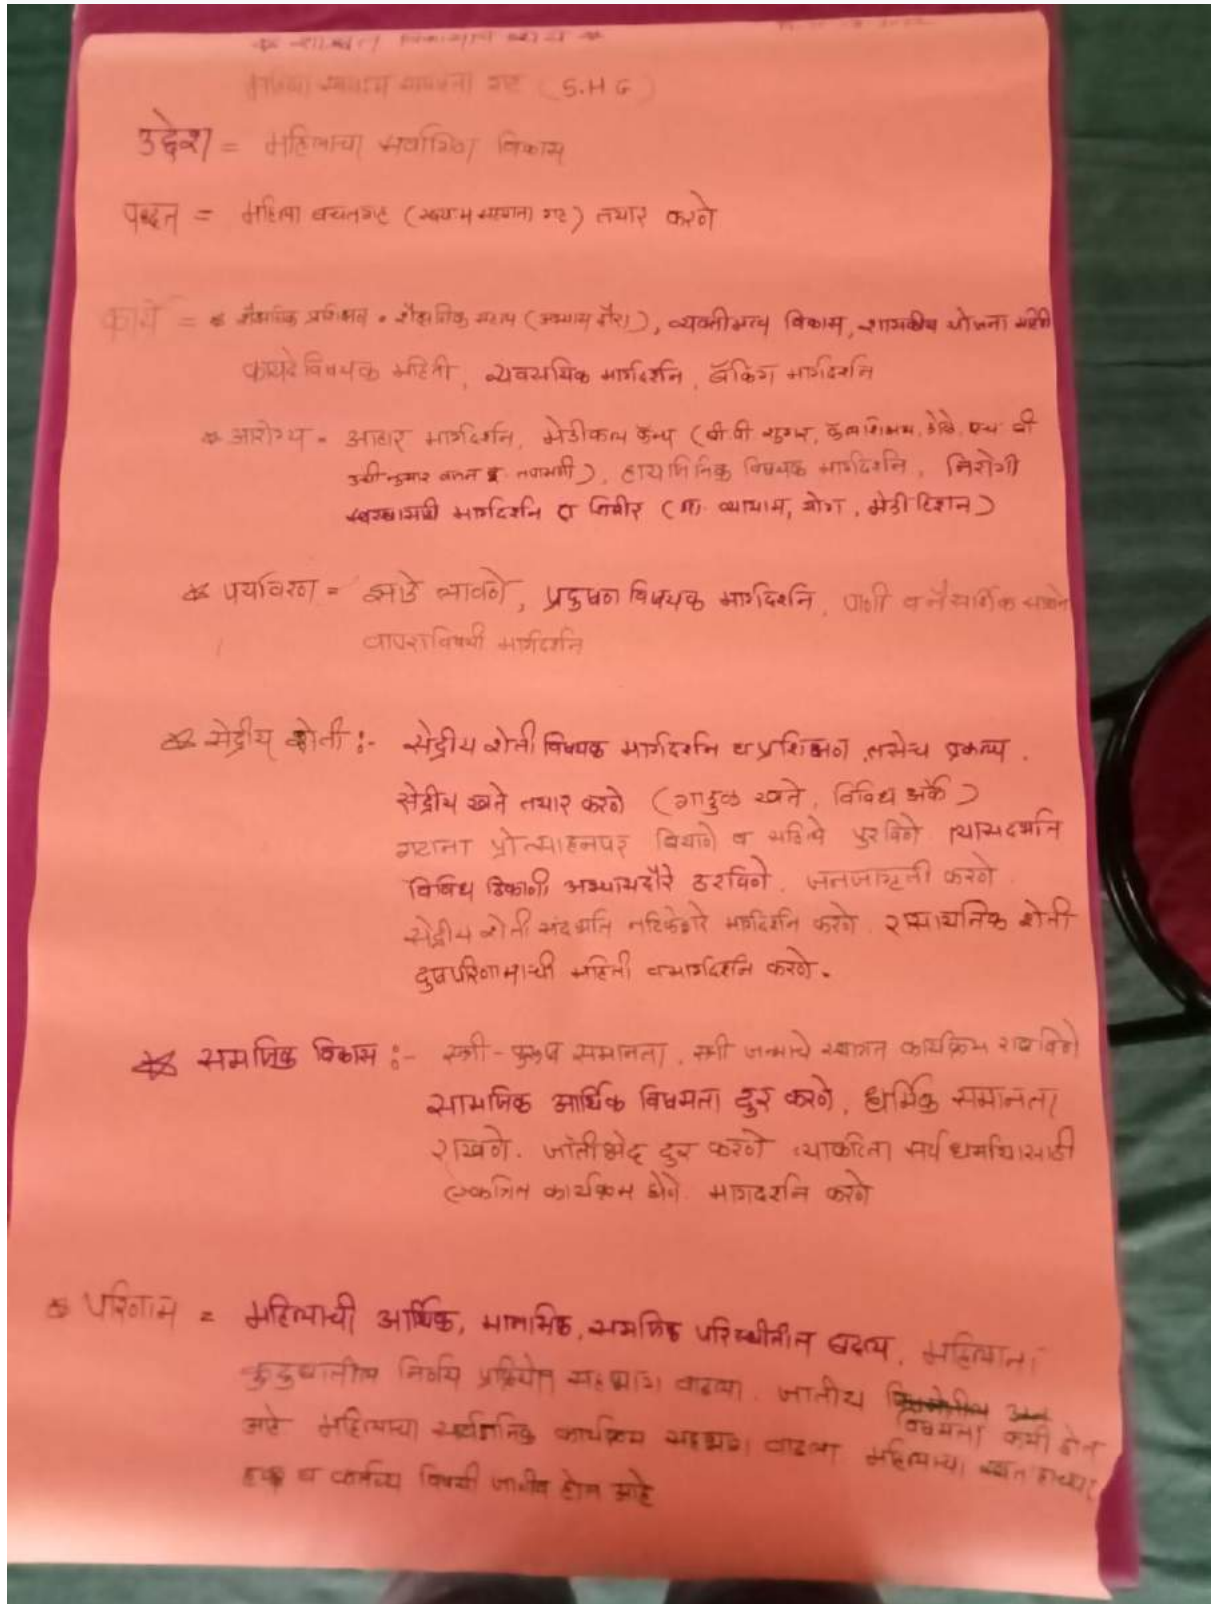 * शाश्वत विकासाचे ध्येय *
महिला स्वयंम सहायता गट (S.H.G)
उद्देश = महिलाचा सर्वांगिण विकास
पध्दत = महिला बचतगट (स्वयंम सहायता गट) तयार करणे
कार्य = * शैक्षणिक प्रशिक्षण = शैक्षणिक सहाय (अभ्यास दौरा), व्यक्तीमत्व विकास, शासकीय योजना माहिती
कायदे विषयक माहिती, व्यवसायिक मार्गदर्शन, बँकिंग मार्गदर्शन
* आरोग्य = आहार मार्गदर्शन, मेडीकल कॅम्प (बी पी शुगर, डोळे, एच बी
तपासणी), विषयक मार्गदर्शन, निरोगी
मार्गदर्शन व शिबीर (व्यायाम, योगा, मेडीटेशन)
* पर्यावरण = झाडे लावणे, प्रदुषण विषयक मार्गदर्शन, पाणी व नैसर्गिक साधने
वापराविषयी मार्गदर्शन
* सेंद्रीय शेती :- सेंद्रीय शेती विषयक मार्गदर्शन व प्रशिक्षण तसेच प्रकल्प.
सेंद्रीय खते तयार करणे (गांडुळ खते, विविध अर्के)
गटाना प्रोत्साहनपर बियाणे व साहित्य पुरविणे त्यासदर्भात
विविध ठिकाणी अभ्यासदौरे ठरविणे. जनजागृती करणे.
सेंद्रीय शेती संदर्भात मार्गदर्शन करणे. रासायनिक शेती
दुषपरिणामाची माहिती व मार्गदर्शन करणे.
* समाजिक विकास :- स्त्री-पुरुष समानता, स्त्री जन्माचे स्वागत कार्यक्रम राबविणे
सामाजिक आर्थिक विषमता दुर करणे, धार्मिक समानता
राखणे. जातीभेद दुर करणे त्याकरिता सर्व धर्मीयासाठी
एकत्रित कार्यक्रम घेणे. मागदर्शन करणे
* परिणाम = महिलाची आर्थिक, मानसिक, समाजिक परिस्थीतीत बदल, महिलाना
कुटुंबातील निर्णय प्रक्रियेत सहभाग वाढला. जातीय विषमता कमी होत
आहे महिलाचा सार्वजनिक कार्यक्रम सहभाग वाढला महिलाच्या स्वतःच्या
हक्क व कर्तव्य विषयी जाणीव होत आहे